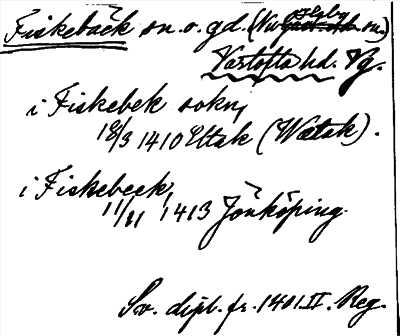 Fiskebäck sn. o. gd. (Nu Habo sn.)
Vartofta hd. Vg.
i Fiskebek sokn,
18/3 1410 Eltak (Wætak).
i Fiskebeck,
11/11 1413 Jönköping.
Sv. dipl. fr. 1401 II. Reg.